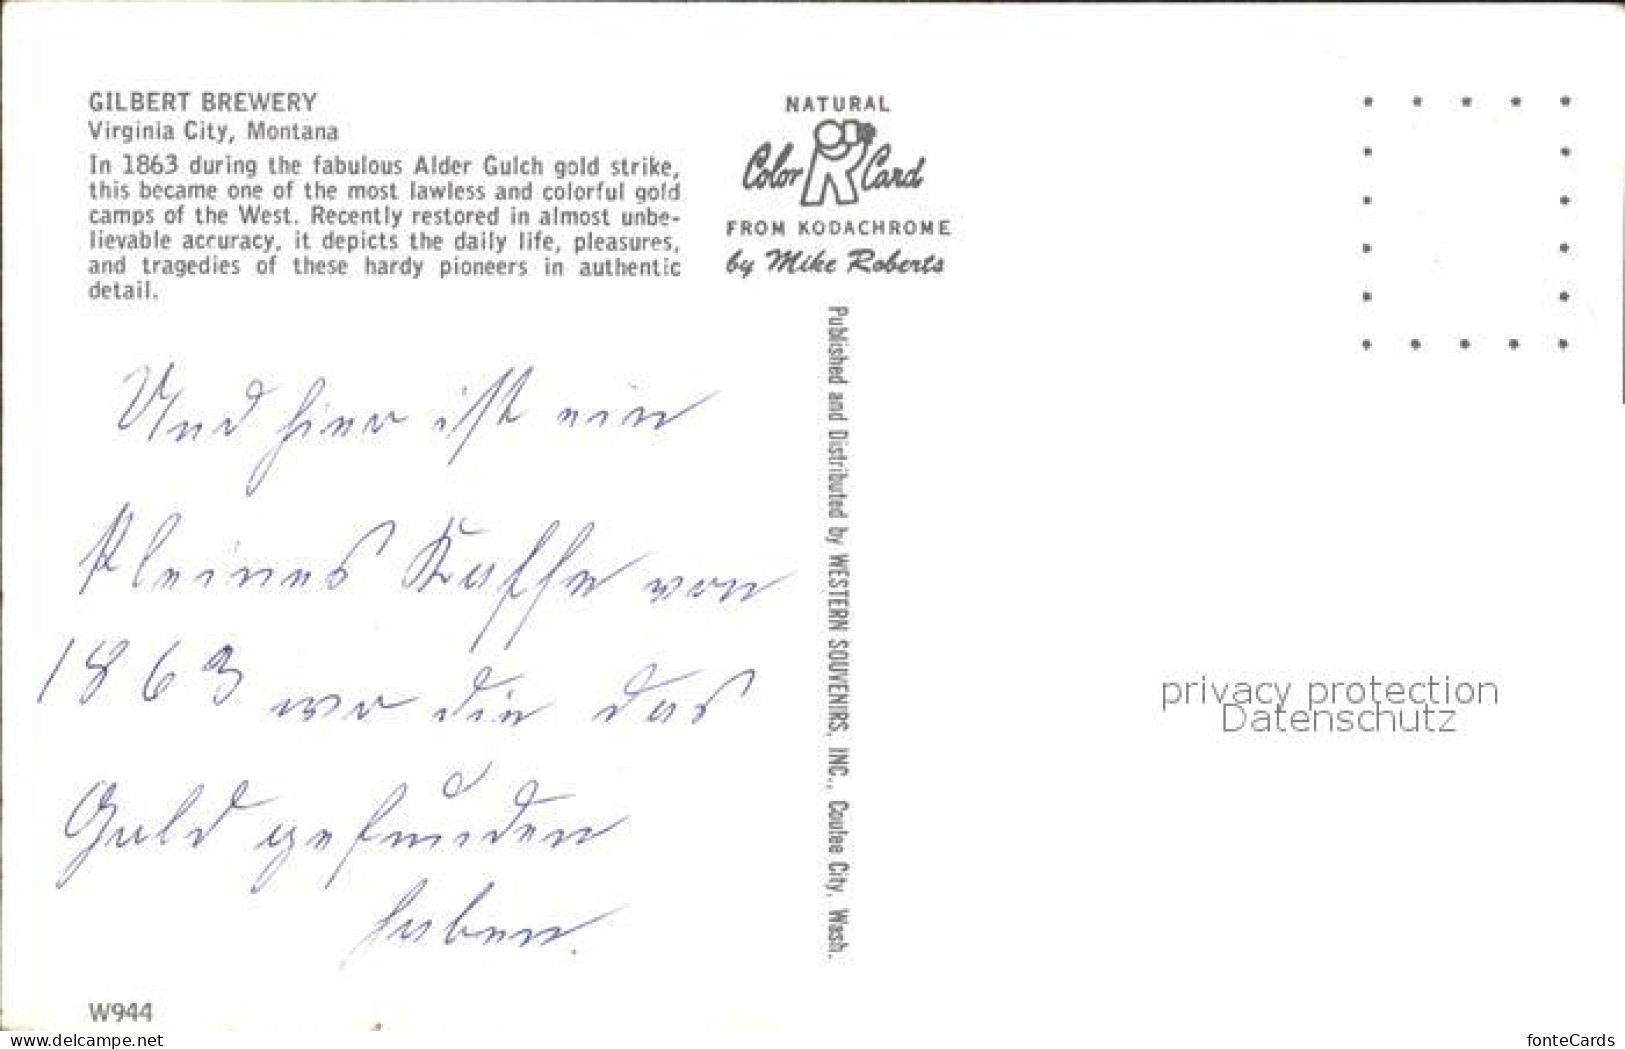 GILBERT BREWERY
Virginia City, Montana
In 1863 during the fabulous Alder Gulch gold strike,
this became one of the most lawless and colorful gold
camps of the West. Recently restored in almost unbe-
lievable accuracy, it depicts the daily life, pleasures,
and tragedies of these hardy pioneers in authentic
detail.
NATURAL
Color Card
FROM KODACHROME
by Mike Roberts
Published and Distributed by WESTERN SOUVENIRS, INC., Coulee City, Wash.
Und hier ist ein
kleines von
1863 wo die das
Gold gefunden
haben.
privacy protection
Datenschutz
W944
www.delcampe.net
fonteCards